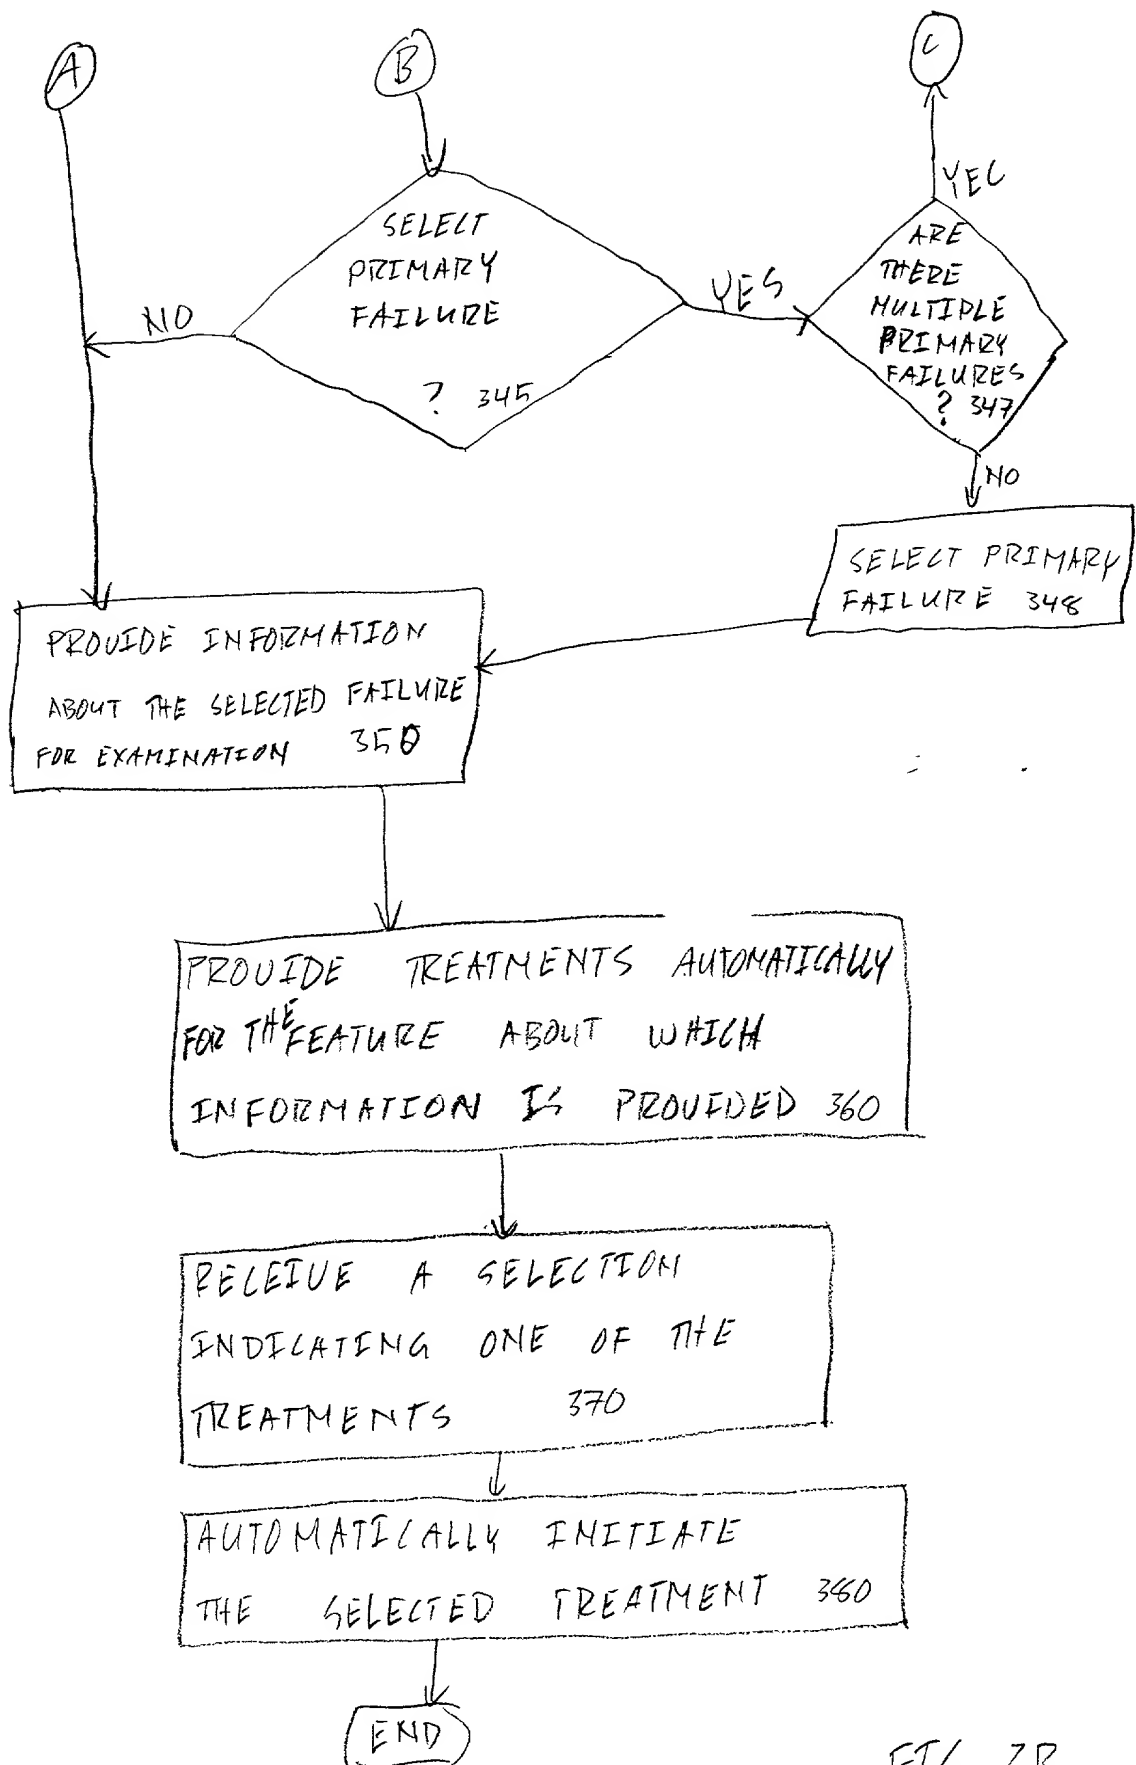 A
B
C
SELECT
PRIMARY
FAILURE
? 345
NO
YES
YEC
ARE
THERE
MULTIPLE
PRIMARY
FAILURES
? 347
NO
SELECT PRIMARY
FAILURE 348
PROVIDE INFORMATION
ABOUT THE SELECTED FAILURE
FOR EXAMINATION 350
PROVIDE TREATMENTS AUTOMATICALLY
FOR THE FEATURE ABOUT WHICH
INFORMATION IS PROVIDED 360
RECEIVE A SELECTION
INDICATING ONE OF THE
TREATMENTS 370
AUTOMATICALLY INITIATE
THE SELECTED TREATMENT 380
END